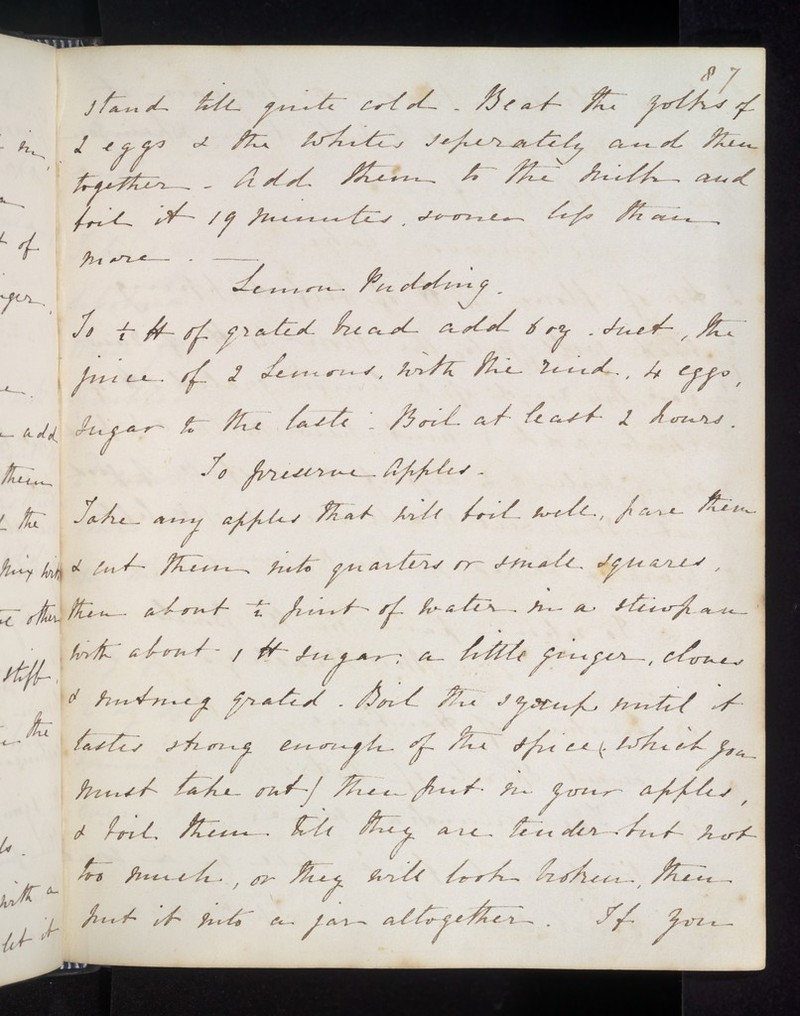 87
stand till quite cold - Beat the yolks of
2 eggs & the whites seperately and then
together - Add them to the milk and
boil it 19 minutes, sooner less than
more. —
Lemon Pudding.
To ½ ℔ of grated bread add 6 oz. suet, the
juice of 2 Lemons, with the rind, 4 eggs,
sugar to the taste. Boil at least 2 hours.
To preserve Apples -
Take any apples that will boil well, pare them
& cut them into quarters or small squares,
then about ½ pint of water in a stewpan
with about 1 ℔ sugar, a little ginger, cloves
& nutmeg grated. Boil the syrup until it
tastes strong enough of the spice (which you
must take out) then put in your apples,
& boil them till they are tender but not
too much, or they will look broken, then
put it into a jar altogether. If you
in,
of
add
them
the
mix with
other
stiff.
the
with a
let it